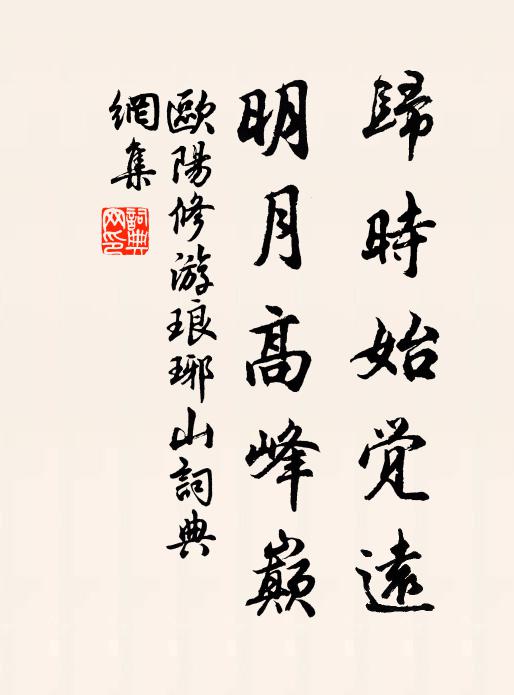 歸時始觉遠
明月高峰巔
歐陽修游琅琊山詞典
網集
詞典网印